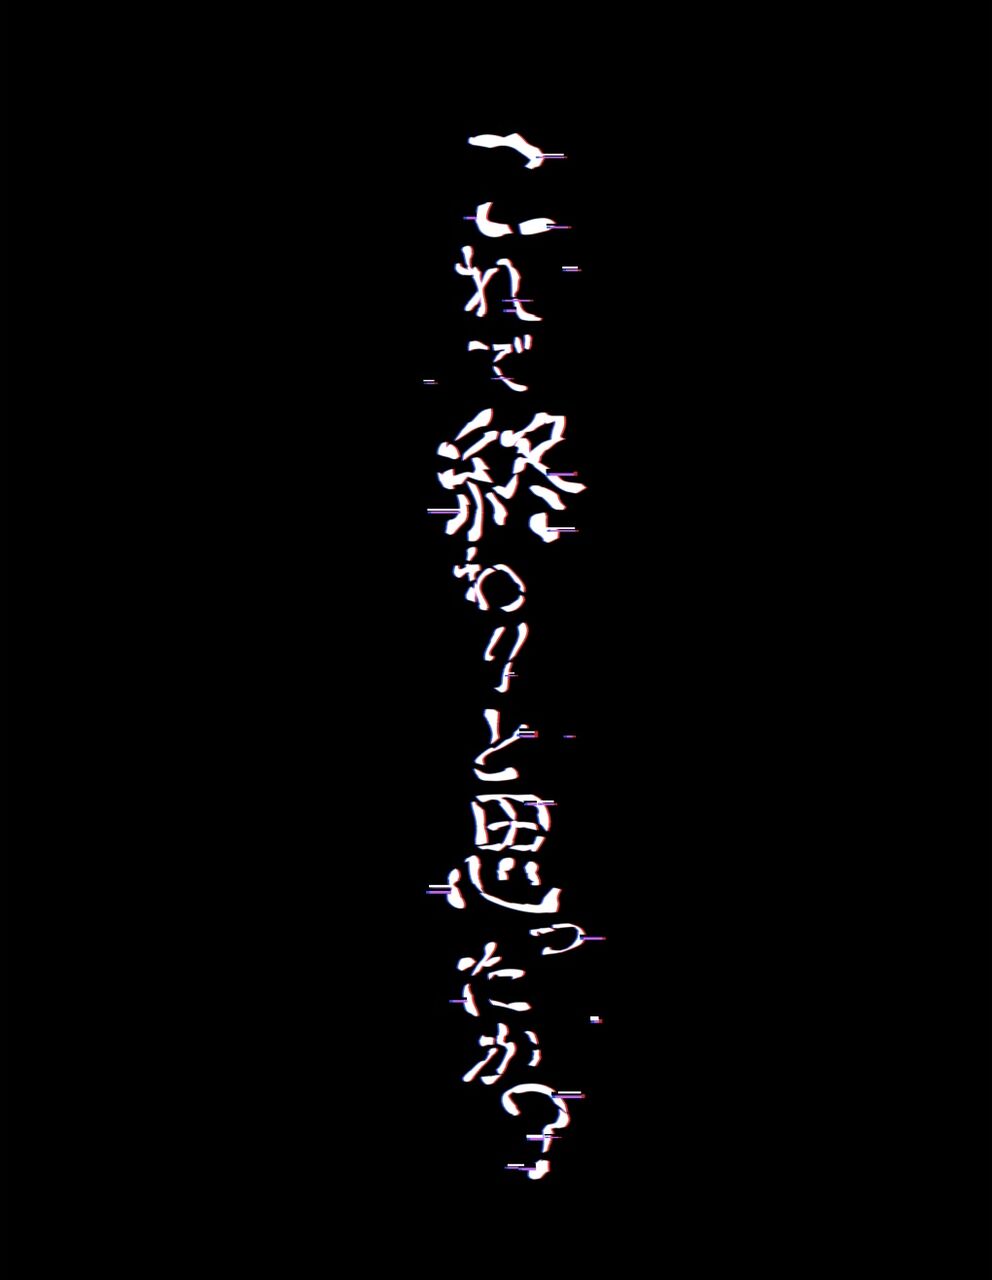 これで終わりと思ったかっ?